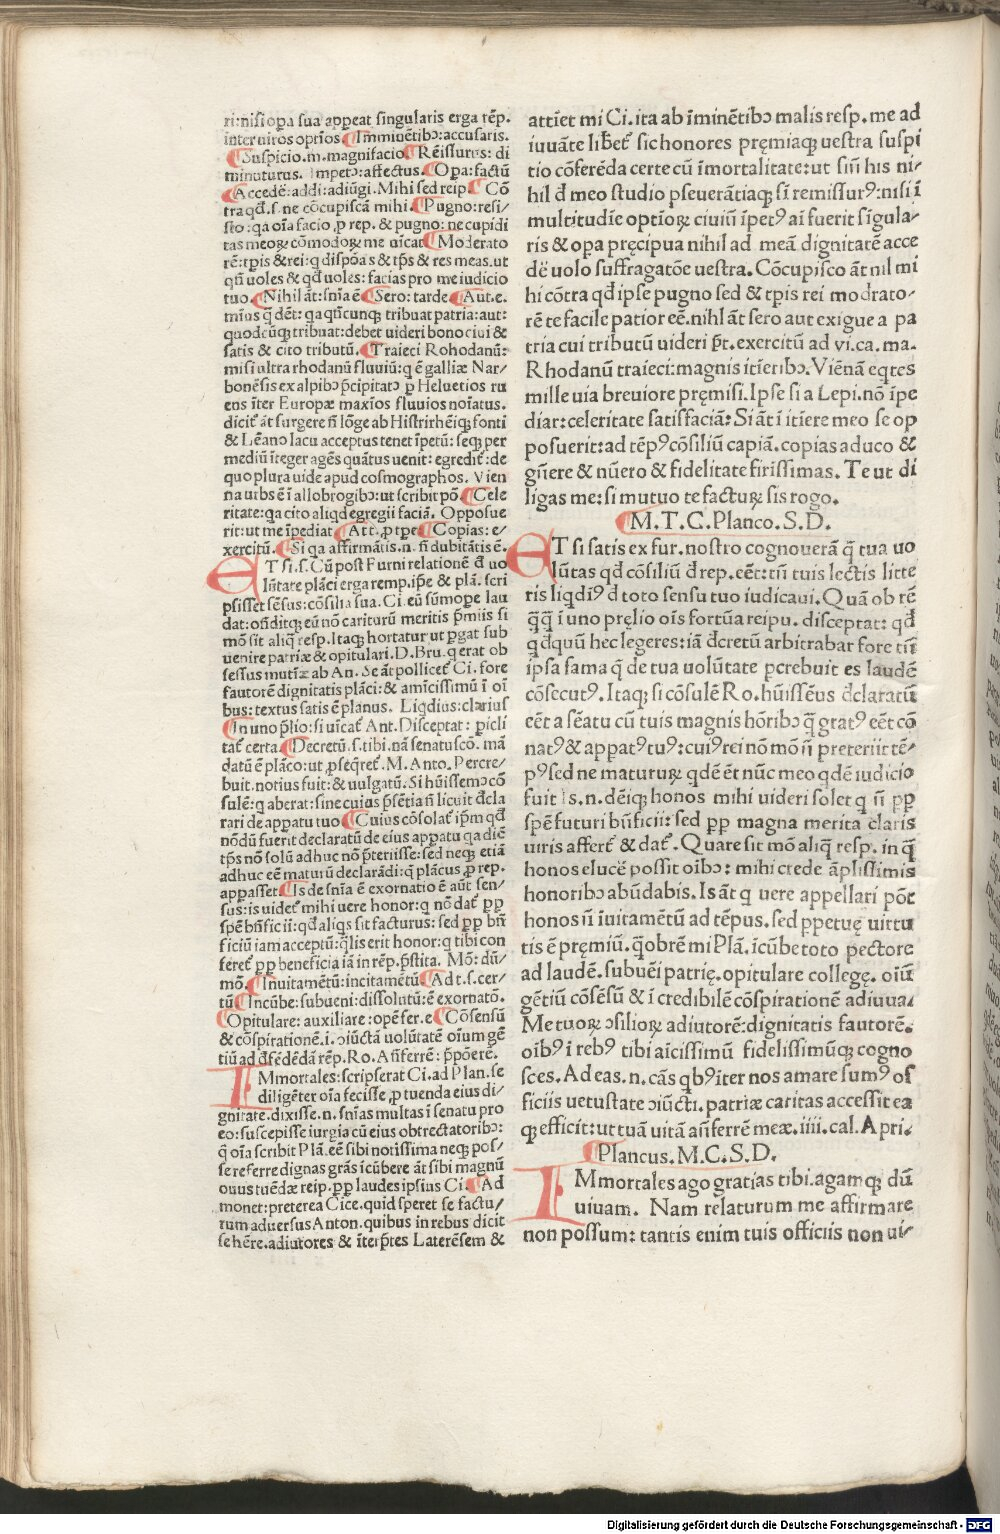 ri:nisi oꝑa sua appeat singularis erga rēp.
inter uiros optīos ¶ Imminētibꝫ:accusaris.
¶ Suspicio.m.magnifacio ¶ Rēissurus: di
minuturus. Impetꝫ: affectus. ¶ Opa: factū
¶ Accedē: addi: adiūgi. Mihi sed reip ¶ Cō
tra qđ.s.ne cōcupiscā mihi. ¶ Pugno:resi⸗
sto: qa oīa facio ꝓ rep. & pugno: ne cupidi
tas meoꝝ cōmodoꝝ me uīcat ¶ Moderato
rē:tꝑis & rei: q dispōas & tꝑs & res meas.ut
qñ uoles & qđ uoles: facias pro me iudicio
tuo. ¶ Nihil āt: snīa ē ¶ Sero: tarde ¶ Aut.e.
mīus q̄ dēt: qa qñcunqꝫ tribuat patria: aut:
quodcūqꝫ tribuat: debet uideri bono ciui &
satis & cito tributū. ¶ Traieci Rohodanū:
misi ultra rhodanū fluuiū: q ē galliæ Nar⸗
bonēsis ex alpibꝫ p̄cipitatꝫ ꝑ Heluetios ru
ens īter Europæ maxīos fluuios noīatus.
dicit̄ āt surgere ñ lōge ab Histri rhēiqꝫ fonti
& Lēano lacu acceptus tenet īpetū: seqꝫ per
mediū īteger agēs quātus uenit: egredit̄: de
quo plura uide apud cosmographos. Vien
na urbs ē ī allobrogibꝫ: ut scribit pō. ¶ Cele
ritate: qa cito aliqđ egregii faciā. Opposue
rit: ut me īpediat ¶ Att. ꝓ tpe ¶ Copias: e⸗
xercitū. ¶ Si qa affirmātis.n. ñ dubitātis ē.
ET si.s. Cū post Furni relationē đ uo
lūtate plāci erga remp. iꝑe & plā. scri
psisset sēsus: cōsilia sua. Ci. eū sūmoꝑe lau
dat: oñditqꝫ eū nō cariturū meritis p̄miis si
mō sit aliq̄ resp. Itaqꝫ hortatur ut pgat sub
uenire patriæ & opitulari. D. Bru. q erat ob
sessus mutīæ ab An. Se āt pollicet̄ Ci. fore
fautorē dignitatis plāci: & amīcissimū ī oī
bus: textus satis ē planus. Liqdius: clarius
¶ In uno p̄lio: si uīcat̄ Ant. Disceptat: picli
tat̄ certa. ¶ Decretū.s. tibi. nā senatuscō. mā
datū ē plāco: ut ꝓseqret̄. M. Anto. Percre⸗
buit. notius fuit: & uulgatū. Si hūissemꝫ cō
sulē: q aberat: sine cuius p̄sētia ñ licuit đcla
rari de appatu tuo ¶ Cuius cōsolat̄ ipm qđ
nōdū fuerit declaratū de eius appatu qa diē
tꝑs nō solū adhuc nō p̄teriisse: sed neqꝫ etiā
adhuc eē maturū declarādi: q̄ plācus ꝓ rep.
appasset. ¶ Is de snīa ē exornatio ē aūt sen⸗
sus: is uidet̄ mihi uere honor: q nō dat̄ ꝓp
spē bñficii: qđ aliqs sit facturus: sed ꝓp bñ
ficiū iam acceptū: q̄lis erit honor: q tibi con
feret̄ ꝓp beneficia iā in rēp. p̄stita. Mō: dū⸗
mō. ¶ Inuitamētū: incitamētū ¶ Ad t.s. cer⸗
tū ¶ Incūbe: subueni: dissolutū: ē exornatō.
¶ Opitulare: auxiliare: opē fer. e ¶ Cōsensū
& cōspirationē.i. ɔiūctā uolūtatē oīum gē
tiū ad đfēdēdā rēp. Ro. Añferrē: p̄pōere.
IMmortales: scripserat Ci. ad Plan. se
diligēter oīa fecisse ꝓ tuenda eius di⸗
gnitate. dixisse.n. snīas multas ī senatu pro
eo: suscepisse iurgia cū eius obtrectatoribꝫ:
q̄ oīa scribit Plā. eē sibi notissima neqꝫ pos⸗
se referre dignas grās icūbere āt sibi magnū
onus tuēdæ reip. ꝓp laudes ipsius Ci. ¶ Ad
monet: preterea Cice. quid speret se factu⸗
rum aduersus Anton. quibus in rebus dicit
se hēre. adiutores & īterp̄tes Laterēsem &
attiet mi Ci. ita ab īminētibꝫ malis resp. me ad
iuuāte liƀet̄ sic honores pręmiaqꝫ uestra suspi
tio cōferēda certe cū īmortalitate: ut siñ his ni⸗
hil đ meo studio pseuerātiaqꝫ sī remissurꝰ: nisi ī
multitudīe optīoꝝ ciuiū īpetꝰ aī fuerit sīgula⸗
ris & opa pręcipua nihil ad meā dignitatē acce
dē uolo suffragatōe uestra. Cōcupisco āt nil mi
hi cōtra qđ ipse pugno sed & tꝑis rei modrato⸗
rē te facile patior eē. nihl āt sero aut exigue a pa
tria cui tributū uideri pōt. exercitū ad vi. ca. ma.
Rhodanū traieci: magnis itīeribꝫ. Viēnā eqtes
mille uia breuiore pręmisi. Ipse si a Lepi. nō īpe
diar: celeritate satisfaciā: Si āt ī itīere meo se op
posuerit: ad tēpꝰ cōsiliū capiā. copias aduco &
gñere & nūero & fidelitate firissimas. Te ut di
ligas me: si mutuo te facturꝝ sis rogo.
¶ M. T. C. Planco. S. D.
ET si satis ex fur. nostro cognouerā q̄ tua uo
lūtas qđ cōsiliū đ rep. eēt: tñ tuis lectis litte
ris liqdiꝰ đ toto sensu tuo iudicaui. Quā ob rē
q̄q̄ ī uno pręlio oīs fortūa reipu. disceptat: qđ
qđ quū hec legeres: iā đcretū arbitrabar fore tñ
ipsa fama q̄ de tua uolūtate percrebuit es laudē
cōsecutꝰ. Itaqꝫ si cōsulē Ro. hūissēus đclaratū
eēt a sēatu cū tuis magnis hōribꝫ q̄ gratꝰ eēt cō
natꝰ & appatꝰ tuꝰ: cuiꝰ rei nō mō ñ preteriit tē⸗
pꝰ sed ne maturuꝝ qdē ēt nūc meo qdē iudicio
fuit Is. n. dēiqꝫ honos mihi uideri solet q ñ ꝓp
spē futuri bñficii: sed ꝓp magna merita claris
uiris affert̄ & dat̄. Quare sit mō aliq̄ resp. in q̄
honos elucē possit oībꝫ: mihi crede āplissimis
honoribꝫ abūdabis. Is āt q uere appellari pōt
honos ñ īuitamētū ad tēpus. sed ꝑpetuę uirtu
tis ē pręmiū. q̄obrē mi Plā. icūbe toto pectore
ad laudē. subuēi patrię. opitulare collegę. oīū
gētiū cōsēsū & ī credibilē cōspirationē adiuua.
Me tuoꝝ ɔsilioꝝ adiutorē: dignitatis fautorē.
oībꝰ ī rebꝰ tibi aīcissimū fidelissimūqꝫ cogno
sces. Ad eas. n. cās qbꝰ īter nos amare sumꝰ of
ficiis uetustate ɔiūcti. patriæ caritas accessit ea
qꝫ efficit: ut tuā uitā añferrē meæ. iiii. cal. Apri.
¶ Plancus. M. C. S. D.
IMmortales ago gratias tibi. agamqꝫ dū
uiuam. Nam relaturum me affirmare
non possum: tantis enim tuis officiis non ui⸗
Digitalisierung gefördert durch die Deutsche Forschungsgemeinschaft - DFG